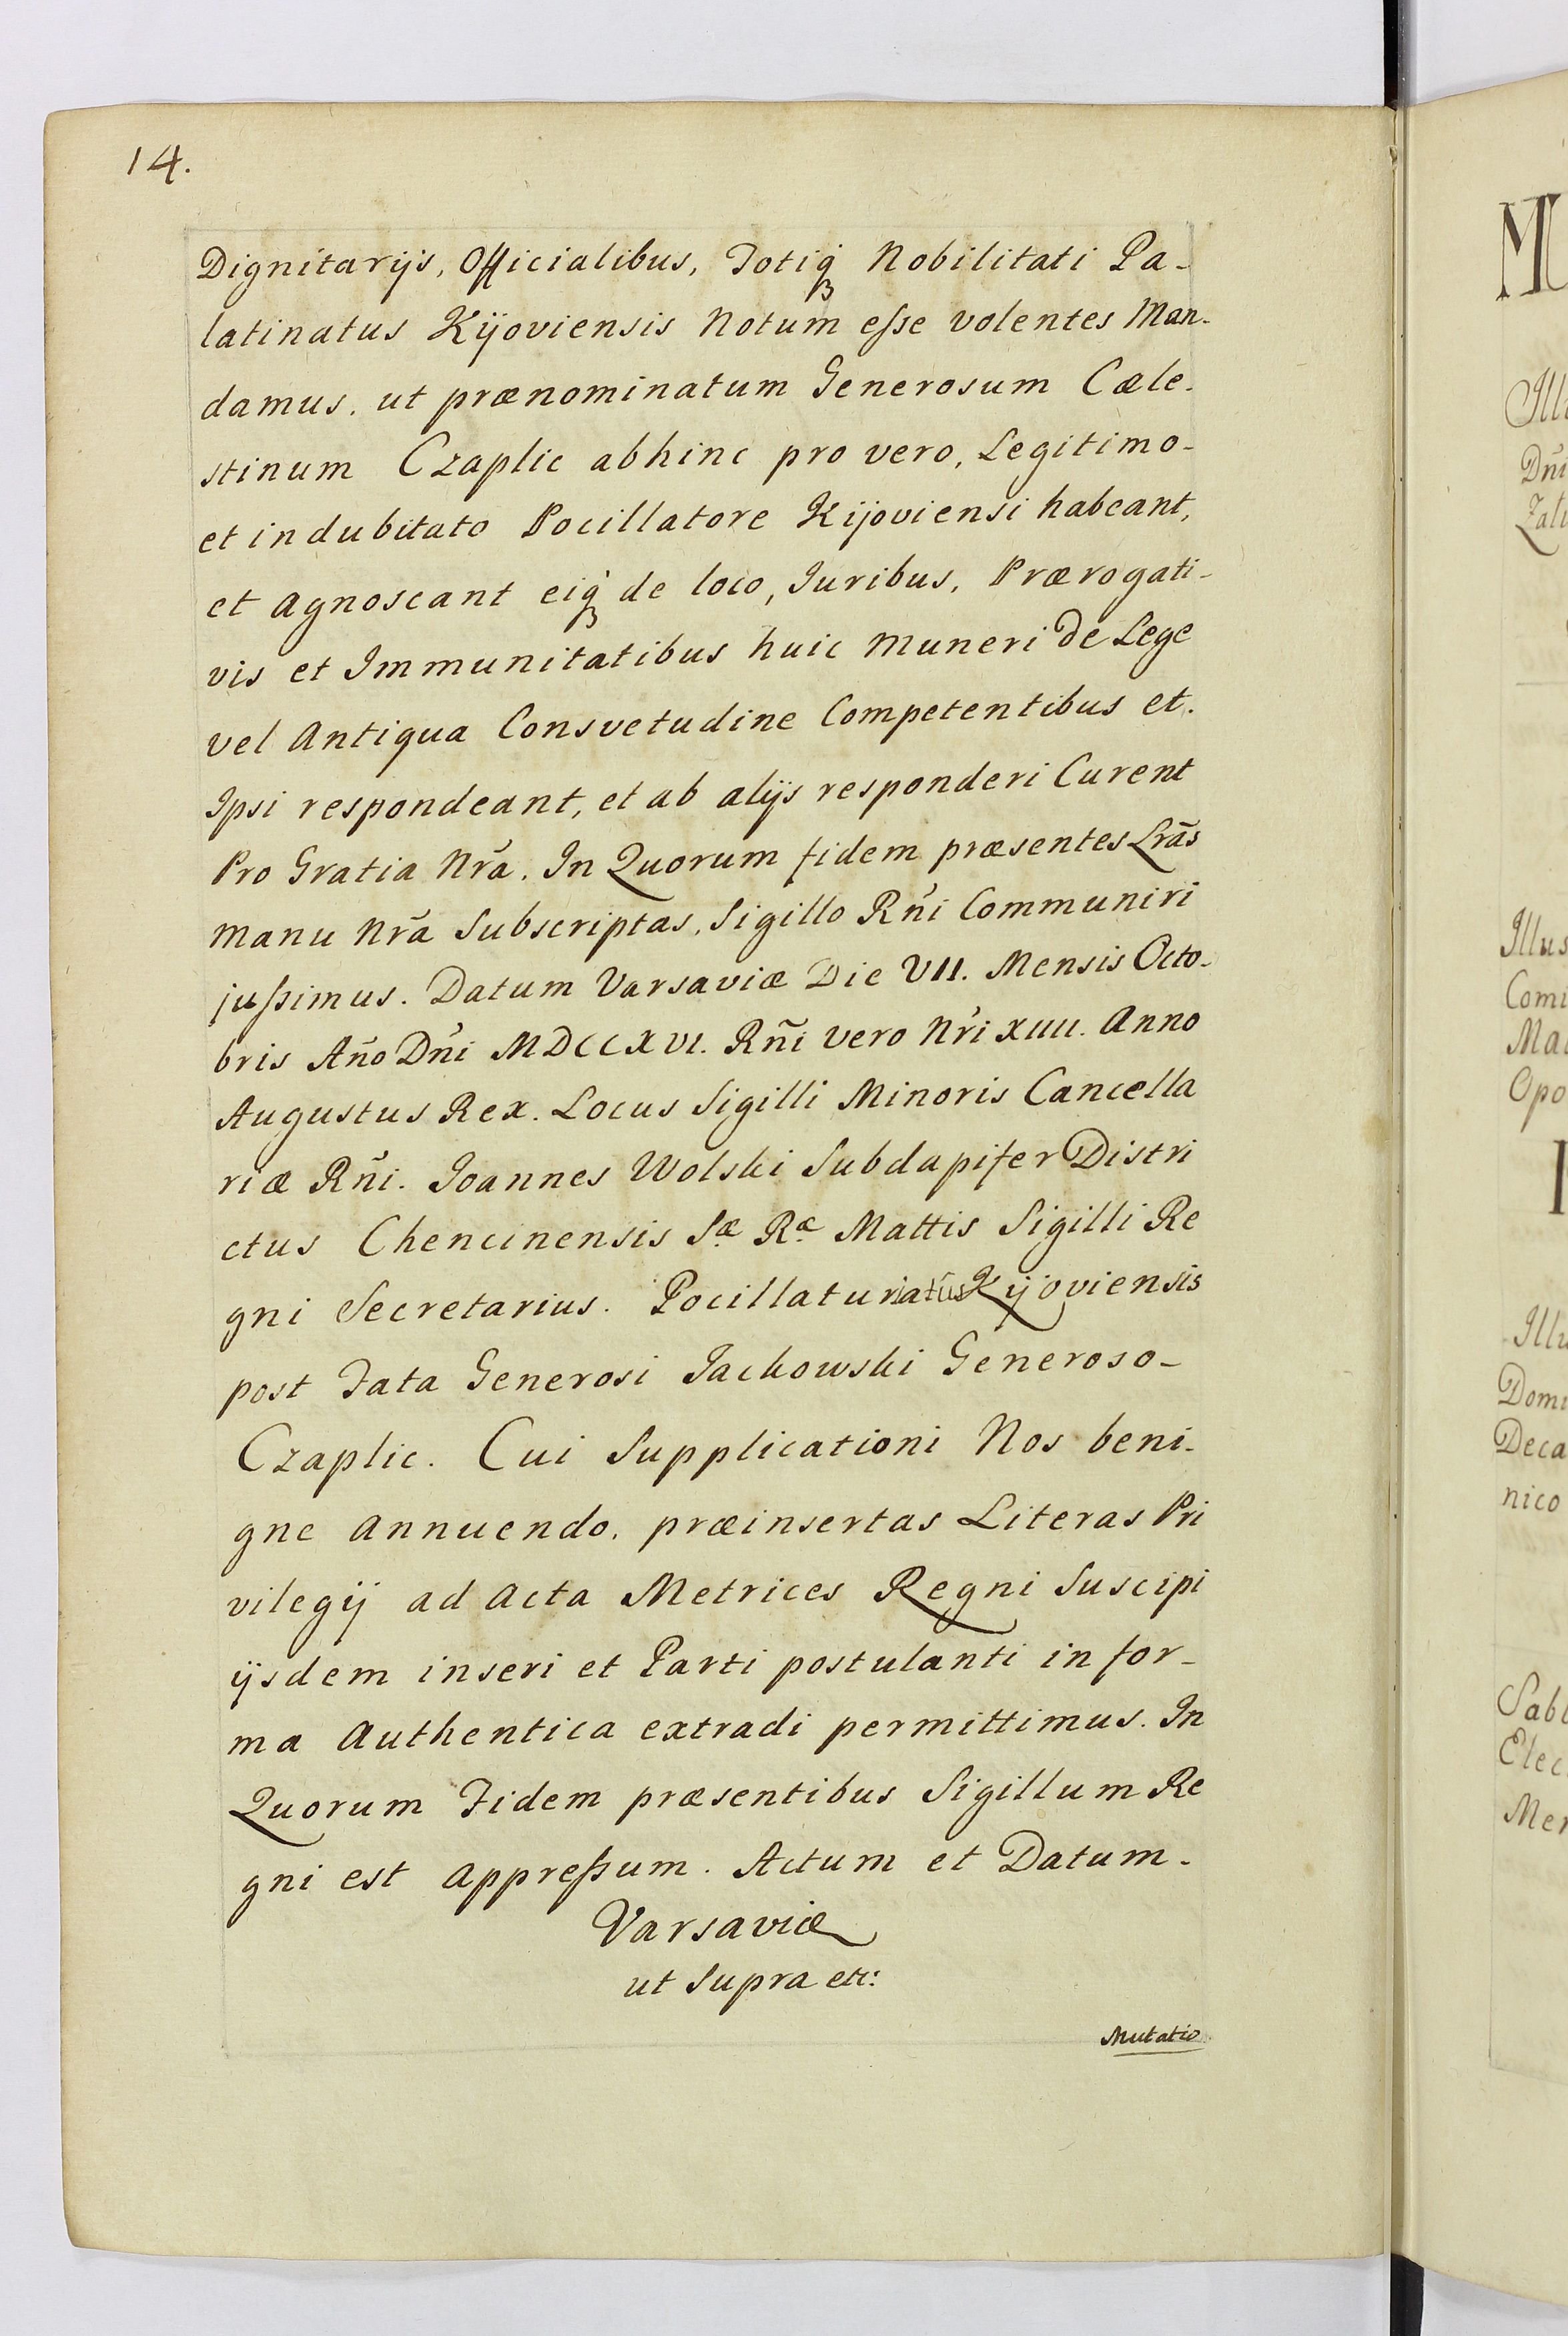 14.
Dignitarijs, Officialibus, Totiq́ꝫ Nobilitati Pa-
latinatus Kijoviensis Notum eſse volentes Man-
damus. ut prænominatum Generosum Cæle-
stinum Czaplic abhinc pro vero, Legitimo-
et indubitato Pocillatore Kijoviensi habeant,
et agnoscant eiq́ꝫ de loco, Iuribus, Prærogati-
vis et Immunitatibus huic Muneri de Lege
vel Antiqua Consvetudine Competentibus et.
Ipsi respondeant, et ab alijs responderi Curent
Pro Gratia Nr̃a. In Quorum fidem præsentes Lrãs
manu Nr̃a Subscriptas, Sigillo Rñi Communiri
juſsimus. Datum Varsaviæ Die VII. Mensis Octo-
bris Año Dñi MDCCXVI. Rñi vero Nr̃i XIIII. Anno
Augustus Rex. Locus Sigilli Minoris Cancella
riæ Rñi. Ioannes Wolski Subdapifer Distri
ctus Chencinensis Sæ Ræ Mattis Sigilli Re
gni Secretarius. Pocillaturiatûs Kijoviensis
post Fata Generosi Jackowski Generoso-
Czaplic. Cui Supplicationi Nos beni-
gne Annuendo. præinsertas Literas Pri
vilegij ad Acta Metrices Regni Suscipi
ijsdem inseri et Parti postulanti in for-
ma Authentica extradi permittimus. In
Quorum Fidem præsentibus Sigillum Re
gni est appreſsum. Actum et Datum-
Varsaviæ
ut Supra etc:
Mutatio
Dñi
Illus
Comi
Opo
Domi
Deca
nico
Elec